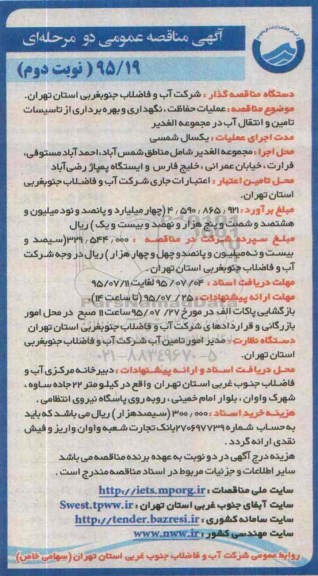 آگهی مناقصه عمومی دو مرحله‌ای
۹۵/۱۹ (نوبت دوم)
دستگاه مناقصه گذار: شرکت آب و فاضلاب جنوبغربی استان تهران.
موضوع مناقصه: عملیات حفاظت، نگهداری و بهره برداری از تاسیسات
تامین و انتقال آب در مجموعه الغدیر
مدت اجرای عملیات: یکسال شمسی
محل اجرا: مجموعه الغدیر شامل مناطق شمس آباد، احمدآباد مستوفی،
فرارت، خیابان عمرانی، خلیج فارس و ایستگاه پمپاژ رضی آباد
محل تامین اعتبار: اعتبارات جاری شرکت آب و فاضلاب جنوبغربی
استان تهران.
مبلغ برآورد: ۴/۵۹۰/۸۶۵/۹۲۱ (چهار میلیارد و پانصد و نود میلیون و
هشتصد و شصت و پنج هزار و نهصد و بیست و یک) ریال
مبلغ سپرده شرکت در مناقصه: ۳۲۹/۵۴۴/۰۰۰ (سیصد و
بیست و نه میلیون و پانصد و چهل و چهار هزار) ریال در وجه شرکت
آب و فاضلاب جنوبغربی استان تهران.
مهلت دریافت اسناد: ۹۵/۰۷/۰۴ لغایت ۹۵/۰۷/۱۱
مهلت ارائه پیشنهادات: ۹۵/۰۷/۲۵ (تا ساعت ۱۴).
بازگشایی پاکات الف در مورخ ۹۵/۰۷/۲۷ ساعت ۱۱ صبح در محل امور
بازرگانی و قراردادهای شرکت آب و فاضلاب جنوبغربی استان تهران
دستگاه نظارت: مدیر امور تامین آب شرکت آب و فاضلاب جنوبغربی
استان تهران.
محل دریافت اسناد و ارائه پیشنهادات: دبیرخانه مرکزی آب و
فاضلاب جنوب غربی استان تهران واقع در کیلومتر ۲۲ جاده ساوه،
شهرک واوان، بلوار امام خمینی، روبه روی پاسگاه نیروی انتظامی.
هزینه خرید اسناد: ۳۰۰/۰۰۰ (سیصدهزار) ریال می باشد که باید
به حساب شماره ۲۷۰۶۹۷۷۳۹ بانک تجارت شعبه واوان واریز و فیش
نقدی ارائه گردد.
هزینه درج آگهی در دو نوبت به عهده برنده مناقصه می باشد
سایر اطلاعات و جزئیات مربوط در اسناد مناقصه مندرج است.
سایت ملی مناقصات: http://iets.mporg.ir
سایت آبفای جنوب غربی استان تهران: Swest.tpww.ir
سایت سامانه کشوری: http://tender.bazresi.ir
سایت مهندسی کشور: www.nww.ir
روابط عمومی شرکت آب و فاضلاب جنوب غربی استان تهران (سهامی خاص)